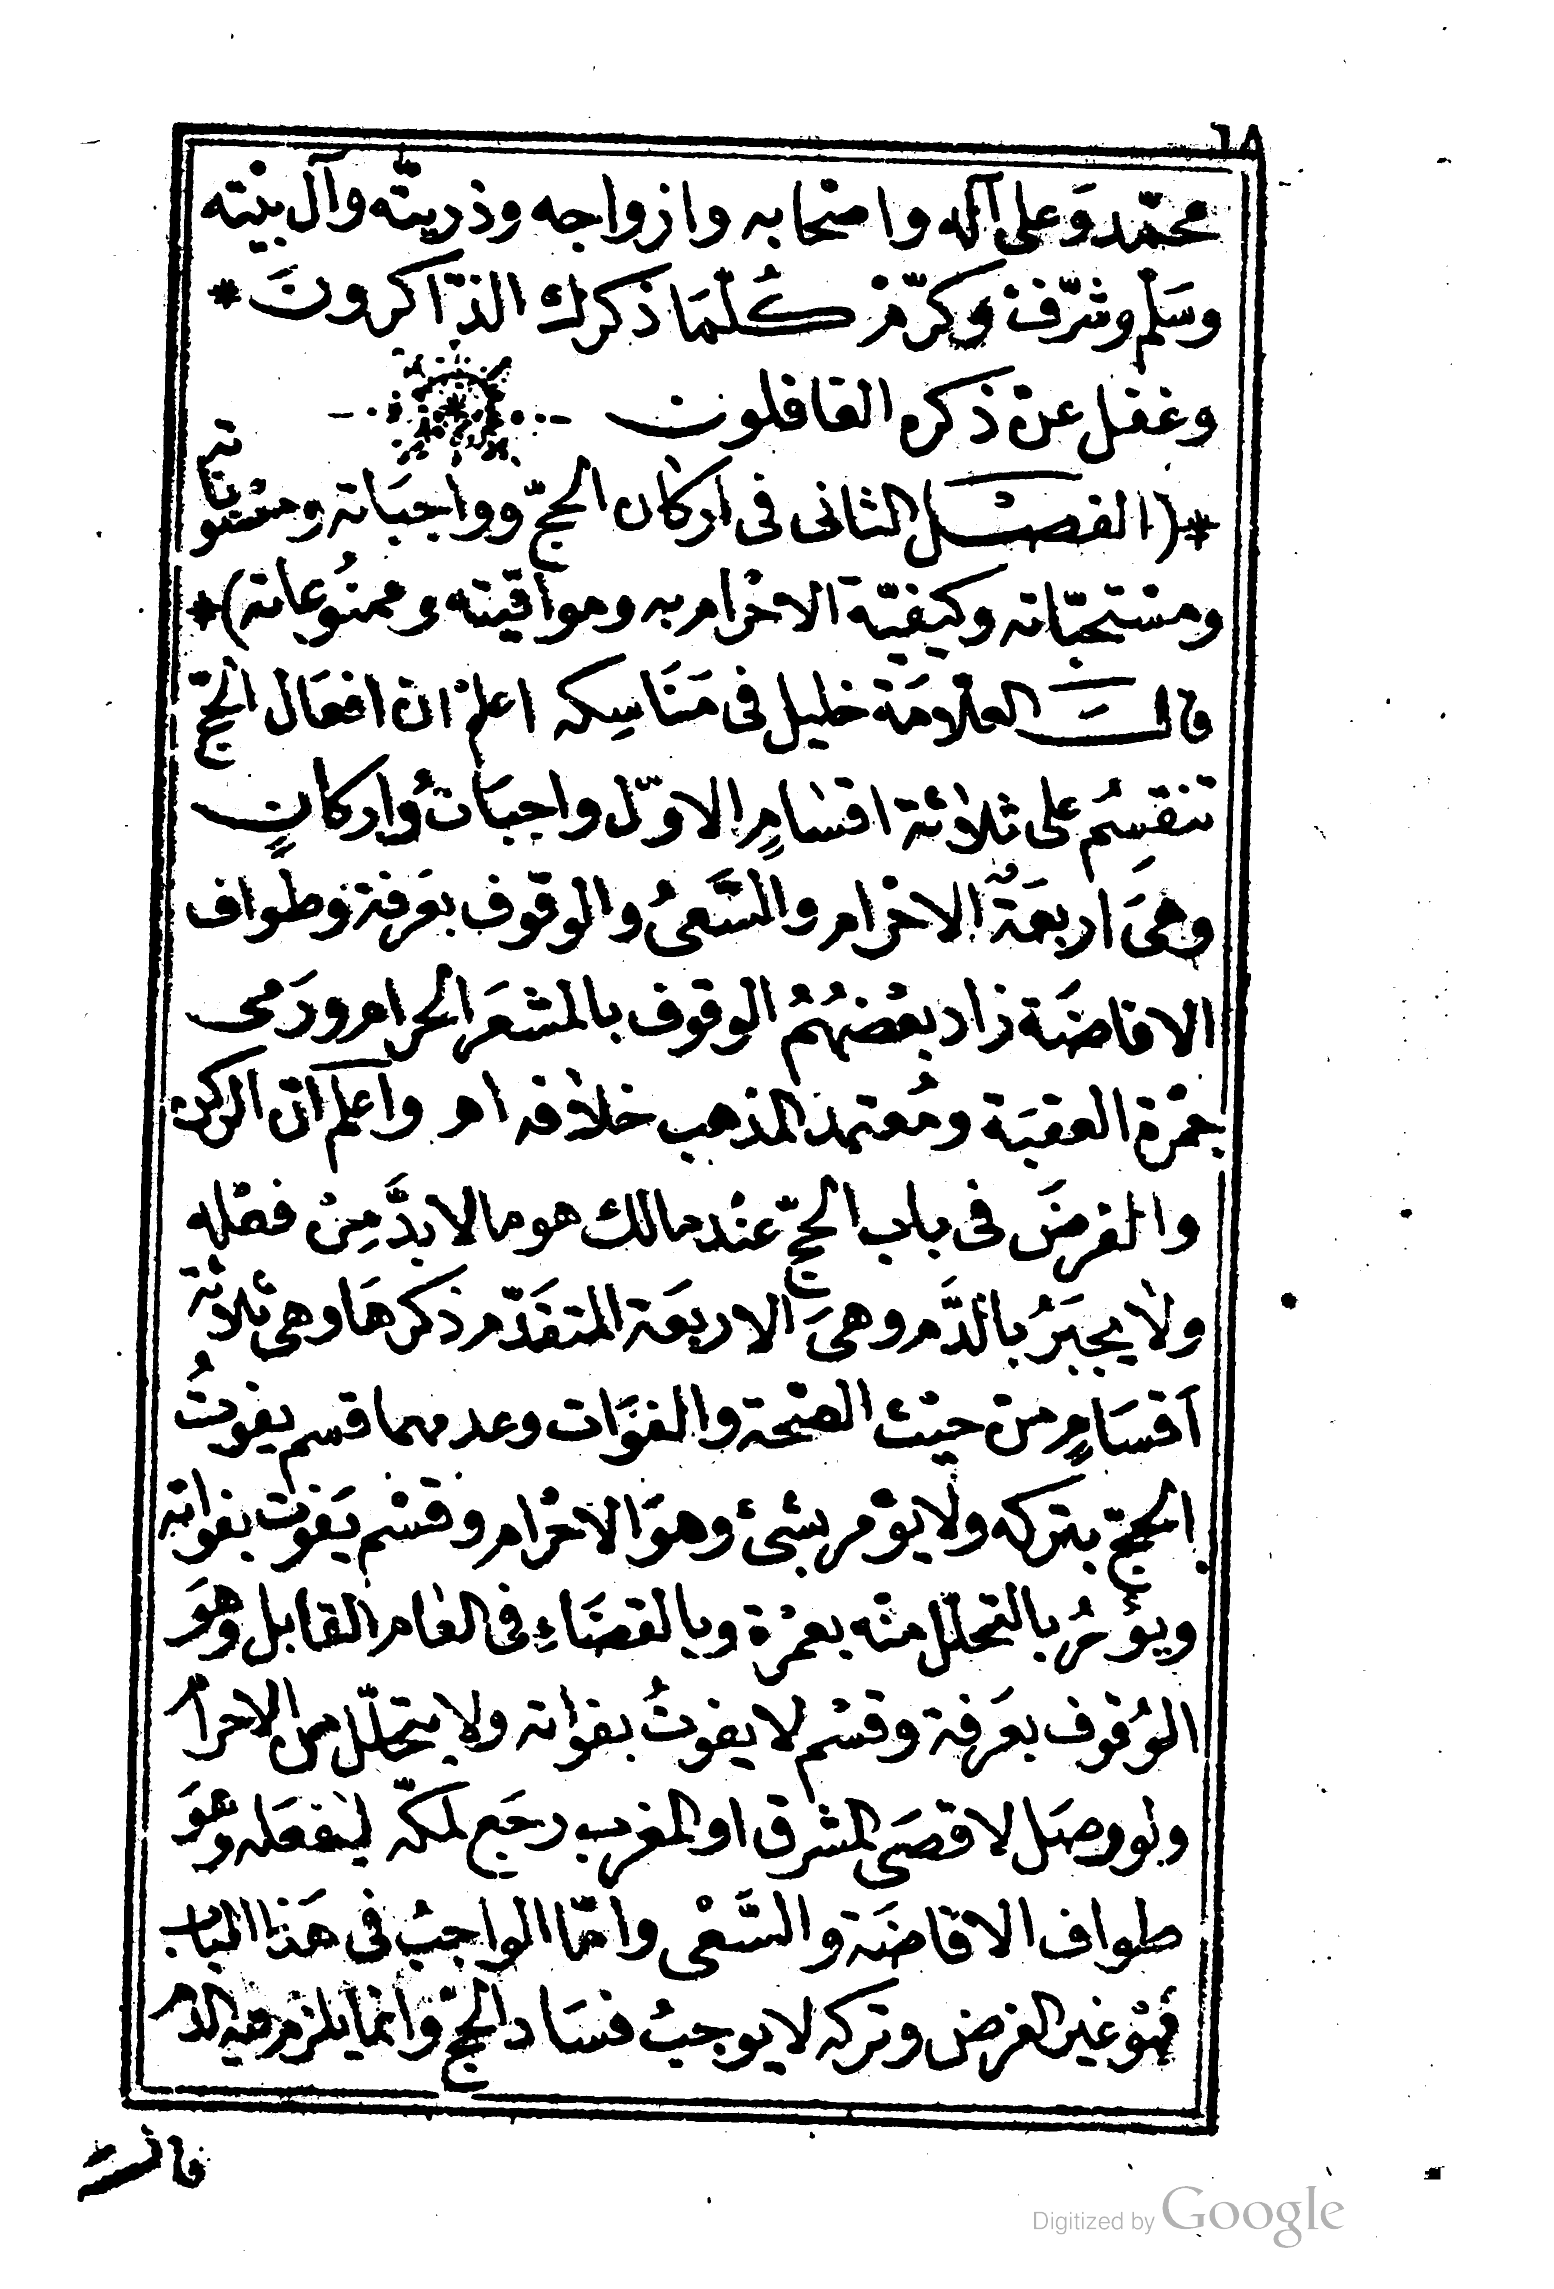 ٦٨
محمّد وَعلى آله واصحابه وازواجه وذريتّه وآل بيْته
وسَلم وشرّفْ وكرّمْ كُلّمَا ذكرك الذّاكرونَ *
وغفل عن ذكره الغافلون
*( الفصْل الثانى فى اركان الحجّ وواجبَاته ومسْنوناته
ومسْتحبّاته وكيفيّة الاحْرام به ومواقيته وممنُوعاته )*
قالَ العلّامَة خليل فى مَنَاسِكه اعلمْ ان افعَال الحجّ
تنقسِمُ على ثلاثة اقسَامٍ الاوّل واجبَاتُ واركانٍ
وهىَ اربعَةٌ الاحْرام والسَّعىُ والوقوف بعَرفة وطواف
الافاضَة زاد بعْضهُمُ الوقوف بالمشعَر الحرام ورَمى
جمْرة العقبَة ومُعتمد المذهب خلافه اهـ واعلم ان الركن
والفرضَ فى باب الحجّ عنْد مالك هو ما لا بدَّ مِنْ فعْله
ولا يجبَرُ بالدَّم وهىَ الاربعَة المتقَدّم ذكرهَا وهى ثلاثة
اَقسَامٍ من حيْث الصّحة والفوَات وعدمهما قسم يفوتُ
الحجّ بتركه ولا يؤْمر بشئ وهوَ الاحْرام وقسْم يَفوت بفواته
ويؤْمرُ بالتحلّل منْه بعمْرة وبالقضَاءِ فى العَام القابل وهوَ
الوُقوف بعَرفة وقسْم لا يفوتُ بفوَاته ولا يتحلّل من الاحرام
ولو وصَل لاقصَى المشرق او المغرب رجَع لمكّه ليَفعَله وهوَ
طواف الافاضَة والسَّعْى وامّا الواجبُ فى هَذا الباب
فهْوَ غير الفرض وتركه لا يوجبُ فسَاد الحجّ وانما يلزم فيه الدّم
قالَ
Digitized by Google